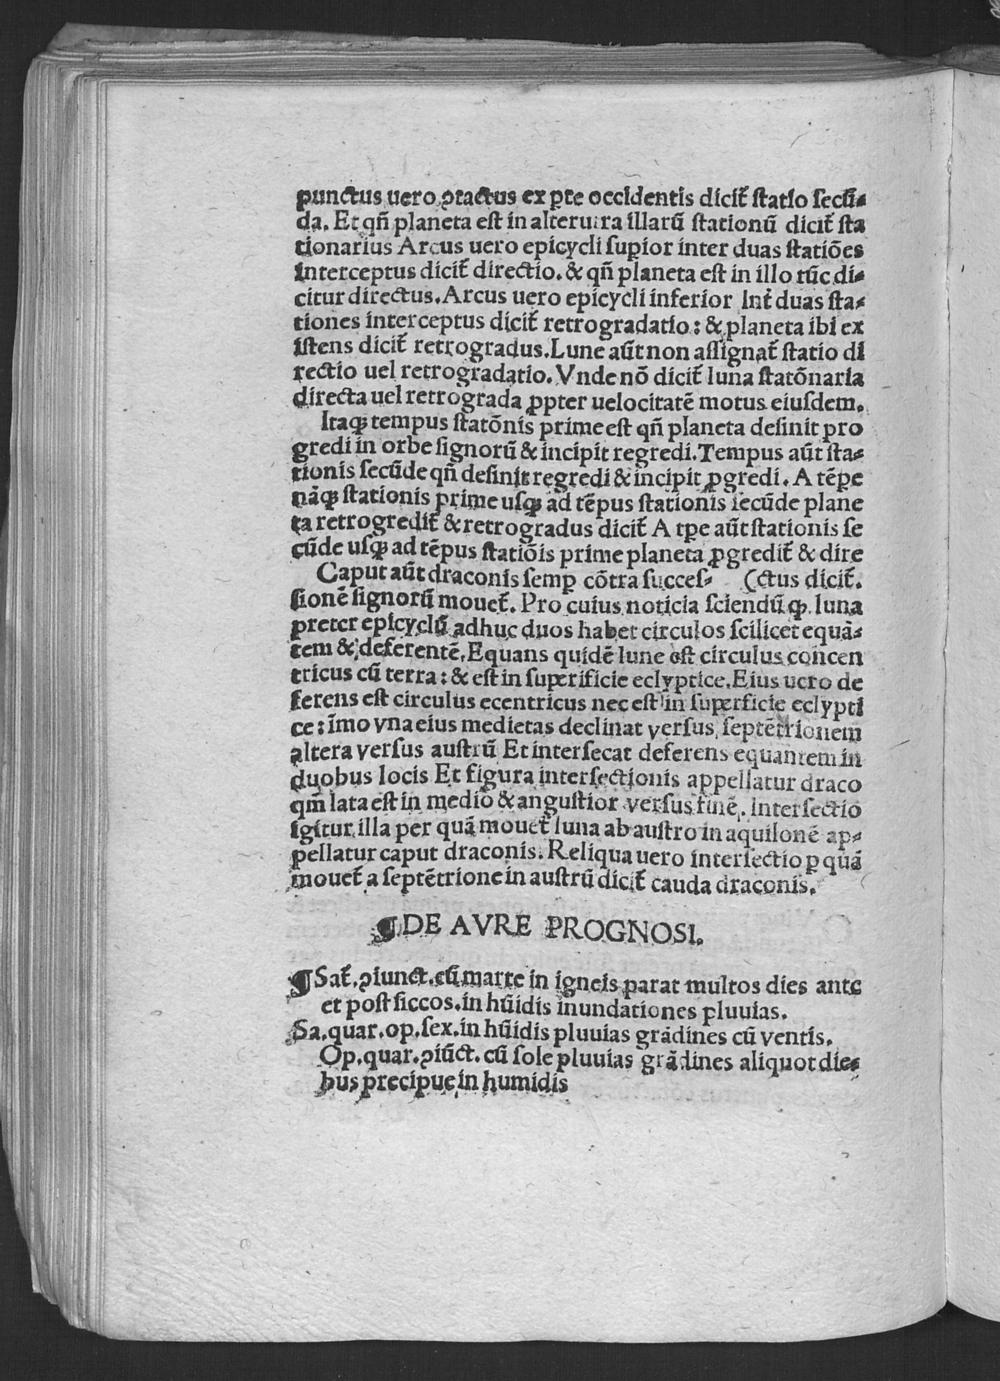 punctus uero ꝯtactus ex ꝑte occidentis dicit᷑ ſtatio ſecū⸗
da. Et qn̄ planeta eſt in alterutra illarū ſtationū dicit᷑ ſta
tionarius Arcus uero epicycli ſuꝑior inter duas ſtatiōes
interceptus dicit᷑ directio. & qn̄ planeta eſt in illo tūc di⸗
citur directus. Arcus uero epicycli inferior int᷑ duas ſta⸗
tiones interceptus dicit᷑ retrogradatio: & planeta ibi ex
iſtens dicit᷑ retrogradus. Lune aūt non aſſignat᷑ ſtatio di
rectio uel retrogradatio. Vnde nō dicit᷑ luna ſtatōnaria
directa uel retrograda ꝓpter uelocitatē motus eiuſdem.
Itaqꝫ tempus ſtatōnis prime eſt qn̄ planeta deſinit pro
gredi in orbe ſignorū & incipit regredi. Tempus aūt ſta⸗
tionis ſecūde qn̄ deſinit regredi & incipit ꝓgredi. A tēꝑe
nāqꝫ ſtationis prime uſqꝫ ad tēpus ſtationis ſecūde plane
ta retrogredit᷑ & retrogradus dicit᷑ A tꝑe aūt ſtationis ſe
cūde uſqꝫ ad tēpus ſtatiōis prime planeta ꝓgredit᷑ & dire
Caput aūt draconis ſemꝑ cōtra ſucceſ⸗ (ctus dicit᷑.
ſionē ſignorū mouet᷑. Pro cuius noticia ſciendū ꝙ luna
preter epicyclū adhuc duos habet circulos ſcilicet equā⸗
tem & deferentē. Equans quidē lune eſt circulus concen
tricus cū terra: & eſt in ſuperificie eclyptice. Eius uero de
ferens eſt circulus ecentricus nec eſt in ſuperficie eclypti
ce: īmo vna eius medietas declinat verſus ſeptētrionem
altera verſus auſtrū Et interſecat deferens equantem in
duobus locis Et figura interſectionis appellatur draco
qm̄ lata eſt in medio & anguſtior verſus finē. Interſectio
igitur illa per quā mouet᷑ luna ab auſtro in aquilonē ap⸗
pellatur caput draconis. Reliqua uero interſectio ꝑ quā
mouet᷑ a ſeptētrione in auſtrū dicit᷑ cauda draconis.
¶DE AVRE PROGNOSI.
¶Sat᷑. ꝯiunct. cū marte in igneis parat multos dies ante
et poſt ſiccos. in hūidis inundationes pluuias.
Sa. quar. op. ſex. in hūidis pluuias grādines cū ventis.
Op. quar. ꝯiūct. cū ſole pluuias grādines aliquot die⸗
bus precipue in humidis